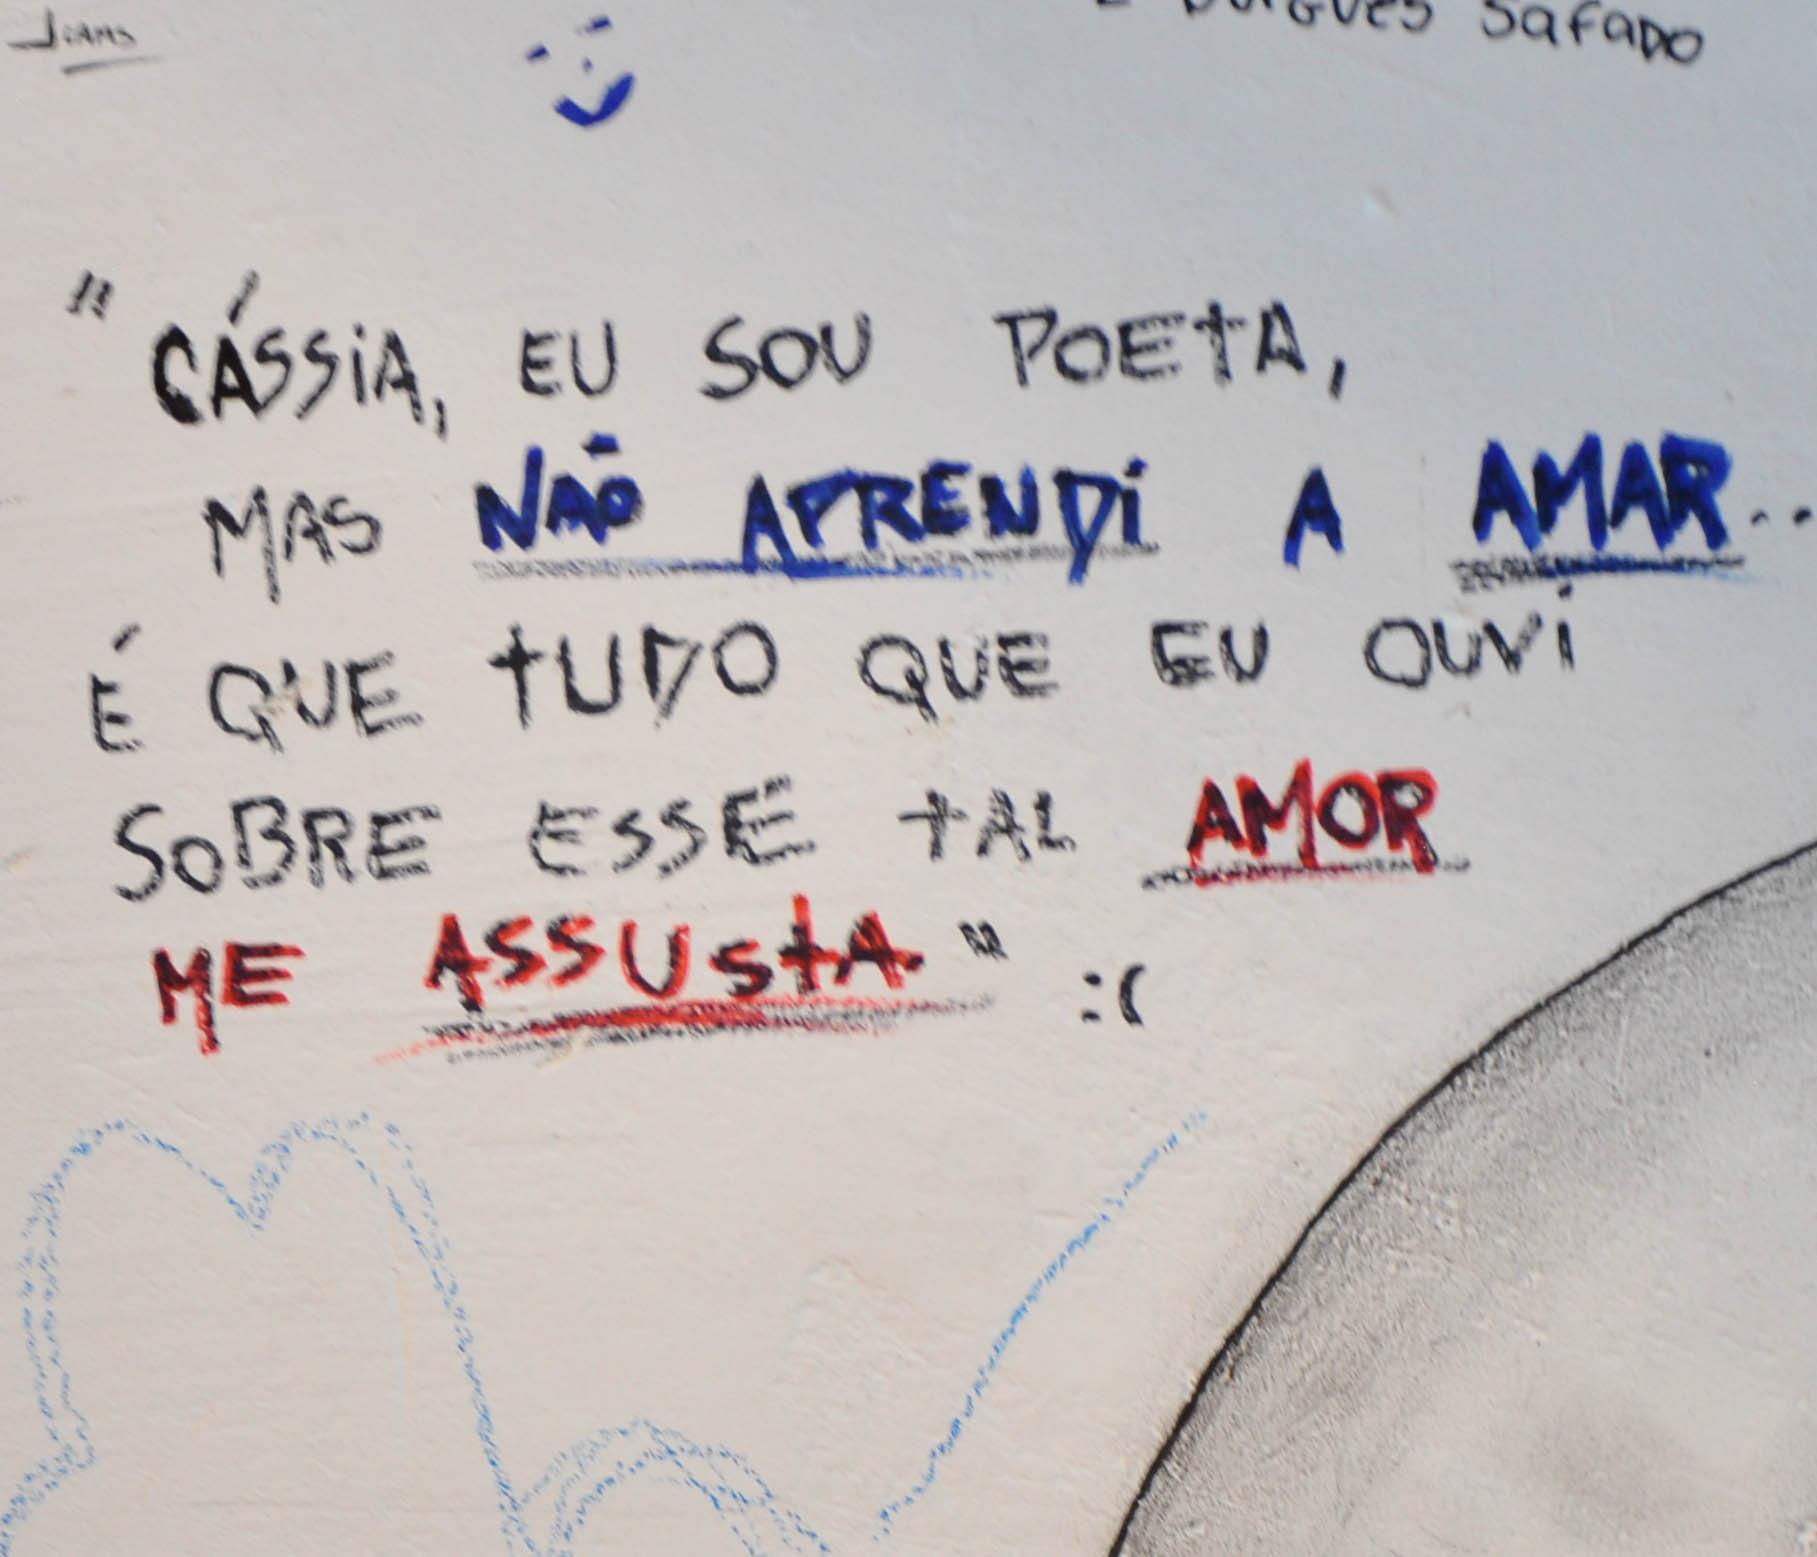 Joams
Burgues Safado
"CÁSSiA, EU SOU POEtA,
MAS NÃO APRENDi A AMAR..
É QUE tUDO QUE EU OUVi
SoBRE ESSE tAL AMOR
ME ASSUstA" :(